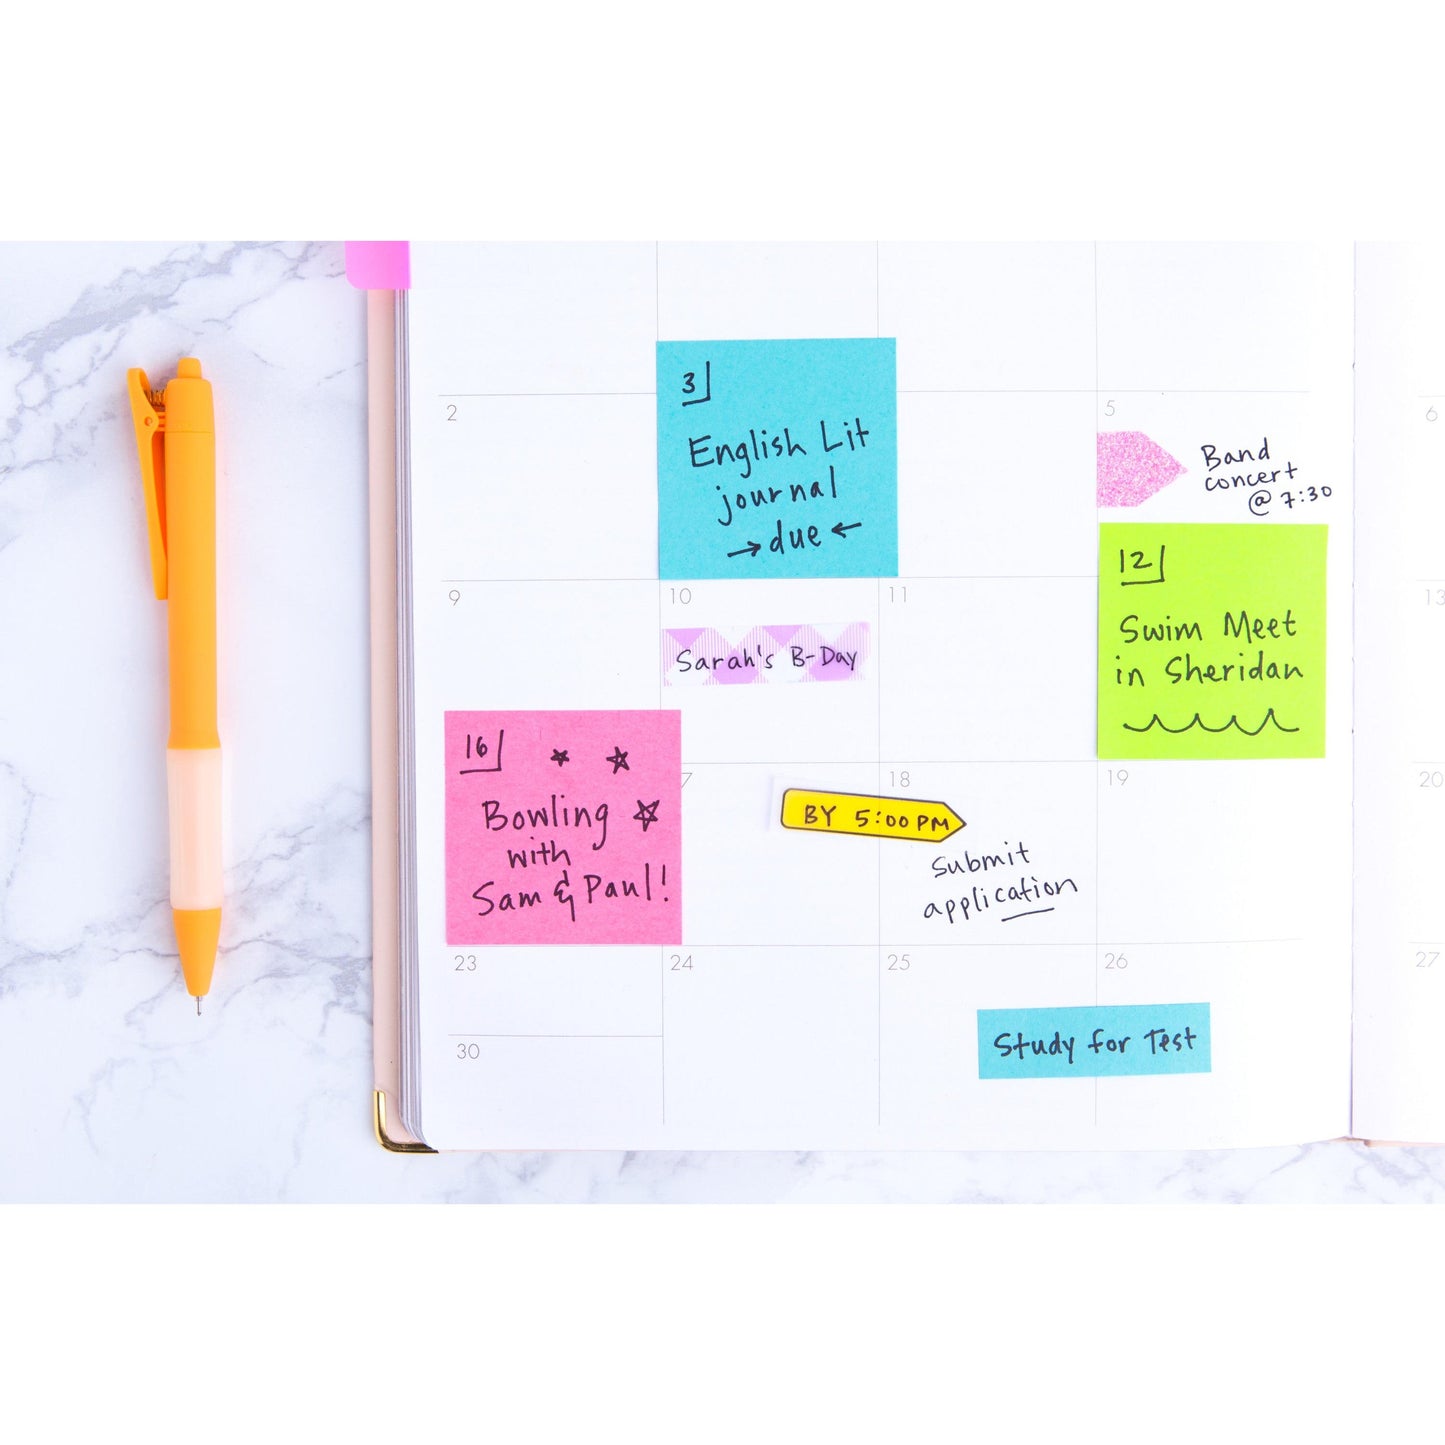 3
English Lit
journal
→ due ←
2
5
Band
concert
@ 7:30
6
9
10
Sarah's B-Day
11
12
Swim Meet
in Sheridan
13
16
Bowling
with
Sam & Paul!
7
BY 5:00 PM
18
Submit
application
19
20
23
24
25
26
27
Study for Test
30